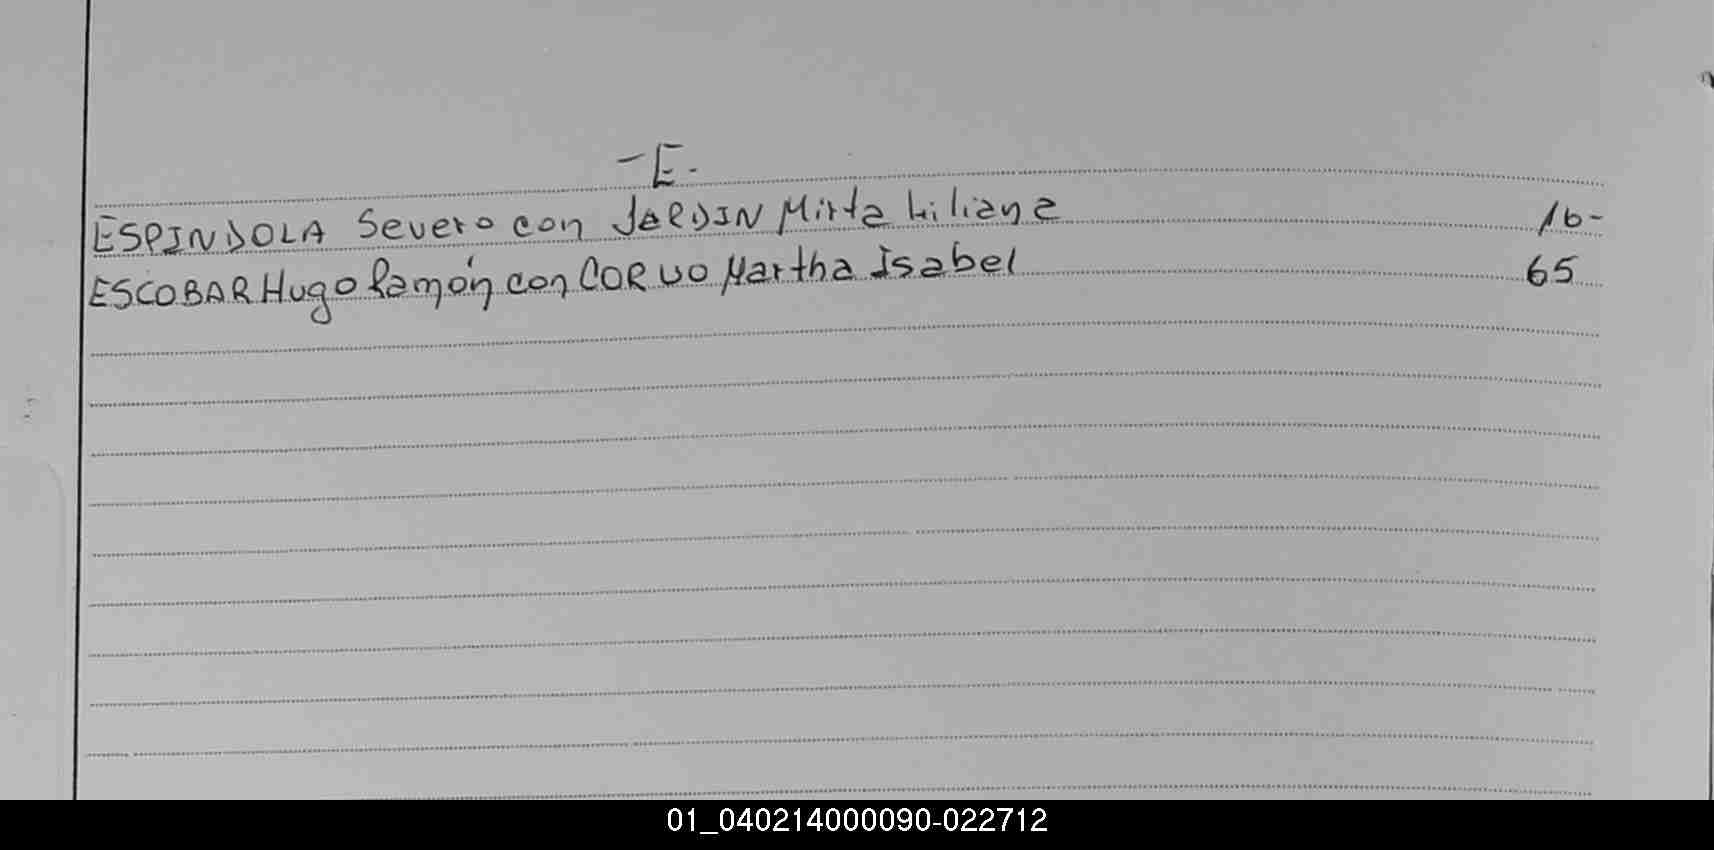 -E-
ESPINDOLA Severo con JARDIN Mirta Liliana 16-
ESCOBAR Hugo Ramón con CORVO Martha Isabel 65
01_040214000090-022712